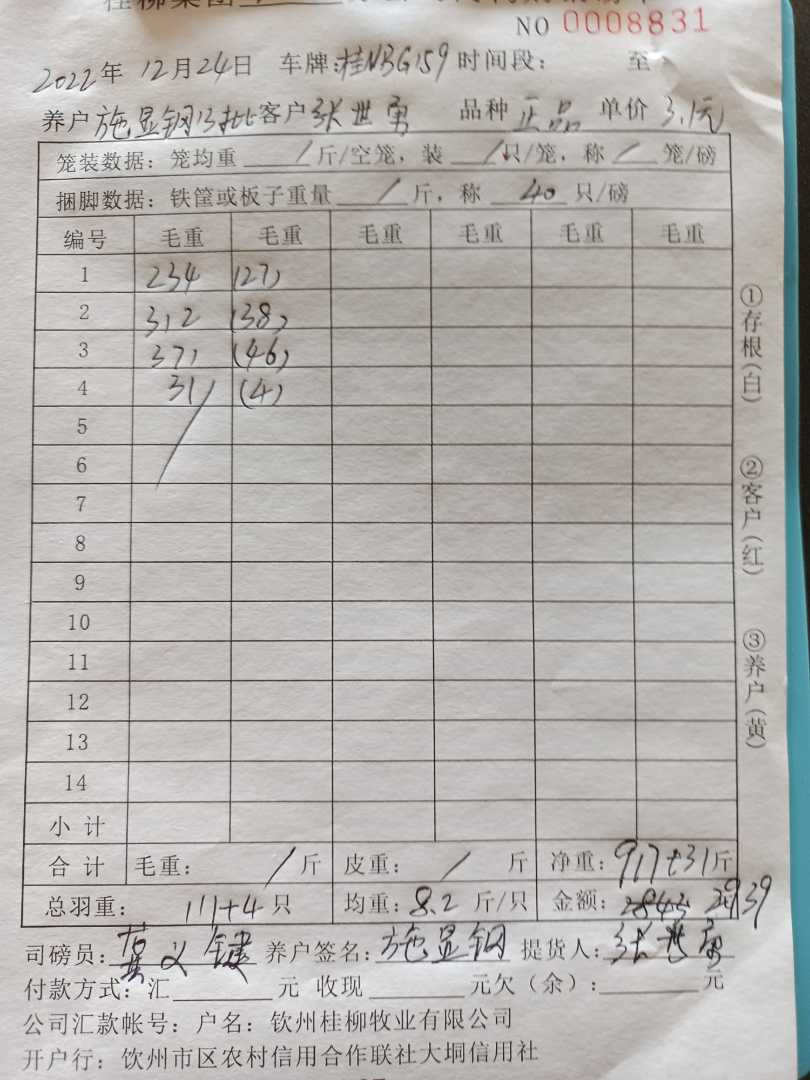 桂柳集团
NO 0008831
2022年 12月24日 车牌:桂NBG159 时间段: 至
养户 施显钢13批 客户 张世勇 品种 正品 单价 3.1元
笼装数据: 笼均重 / 斤/空笼, 装 / 只/笼, 称 / 笼/磅
捆脚数据: 铁筐或板子重量 / 斤, 称 40 只/磅
编号 毛重 毛重 毛重 毛重 毛重 毛重
1 234 (27)
2 312 (38)
3 371 (46)
4 31 (4)
5
6
7
8
9
10
11
12
13
14
小计
合计 毛重: / 斤 皮重: / 斤 净重: 917+31斤
总羽重: 111+4 只 均重: 8.2 斤/只 金额: 2939
司磅员: 养户签名: 施显钢 提货人: 张世勇
付款方式: 汇 元 收现 元欠(余): 元
公司汇款帐号: 户名: 钦州桂柳牧业有限公司
开户行: 钦州市区农村信用合作联社大垌信用社
①存根(白)
②客户(红)
③养户(黄)